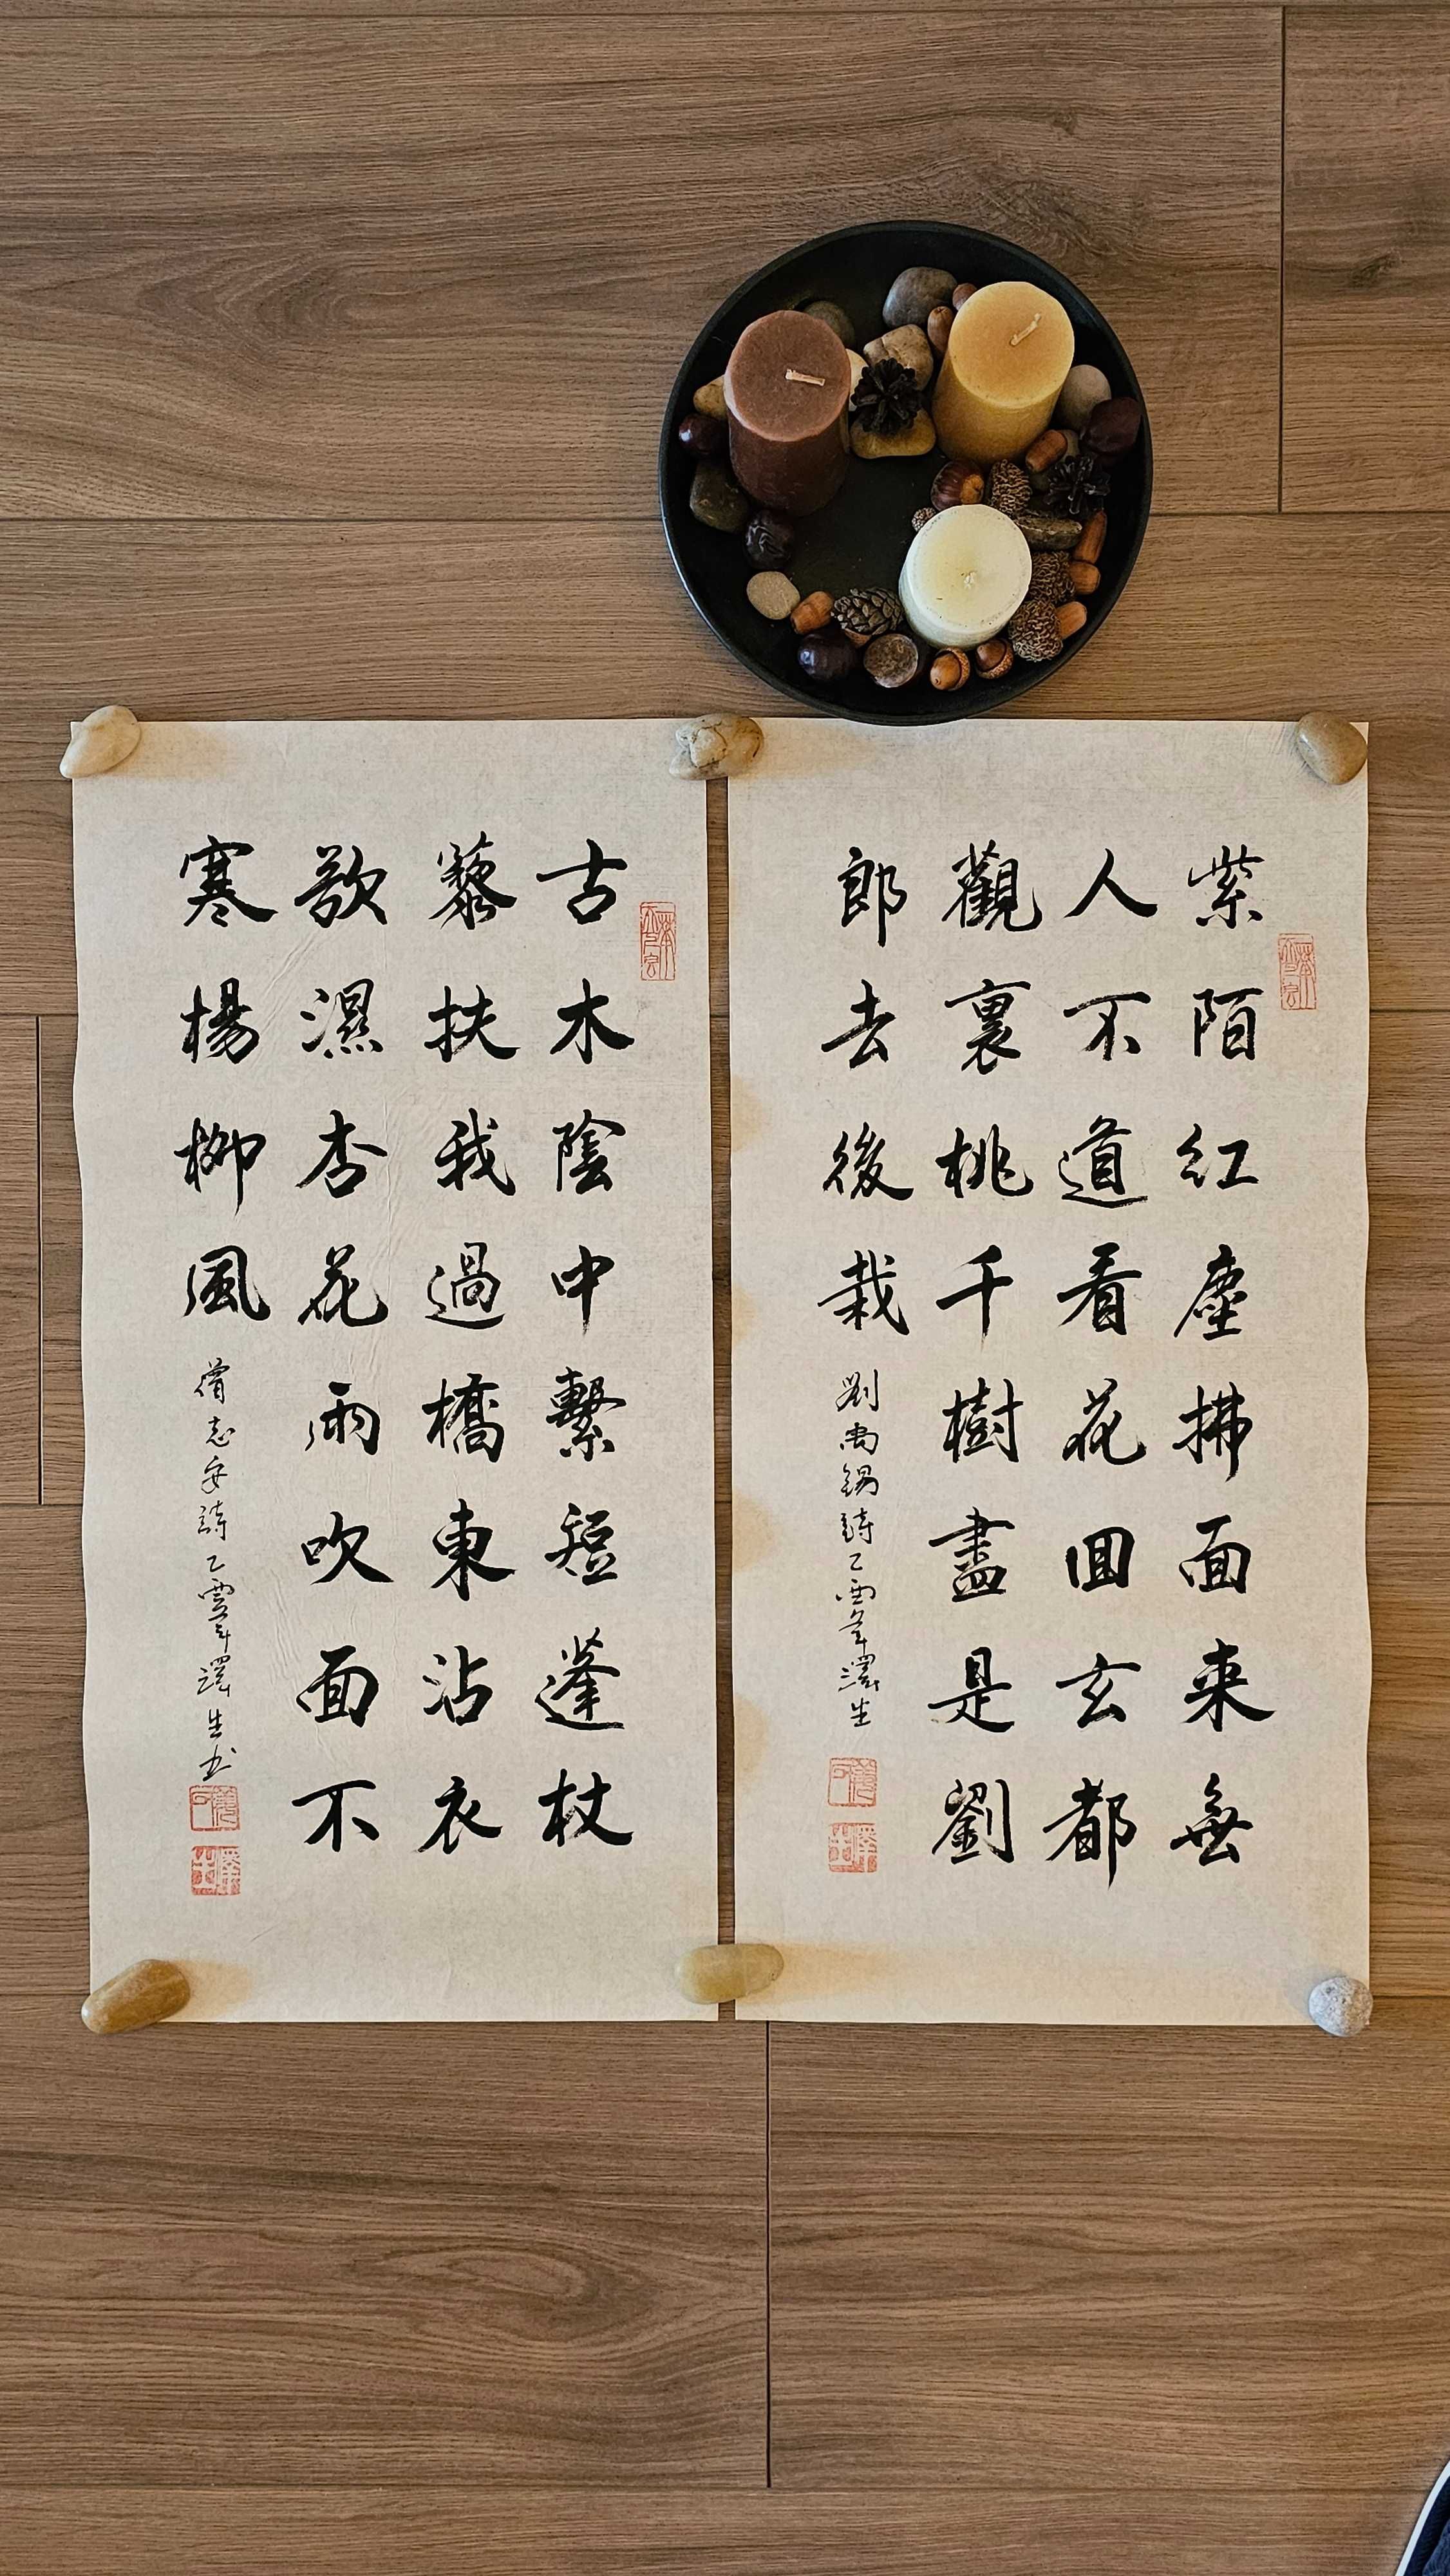 紫陌红塵拂面来無
人不道看花回玄都
觀裏桃千樹盡是劉
郎去後栽
劉禹錫詩乙酉年澤生
古木陰中繫短蓬杖
藜扶我過橋東沾衣
欲濕杏花雨吹面不
寒楊柳風
僧志安詩乙酉年澤生书